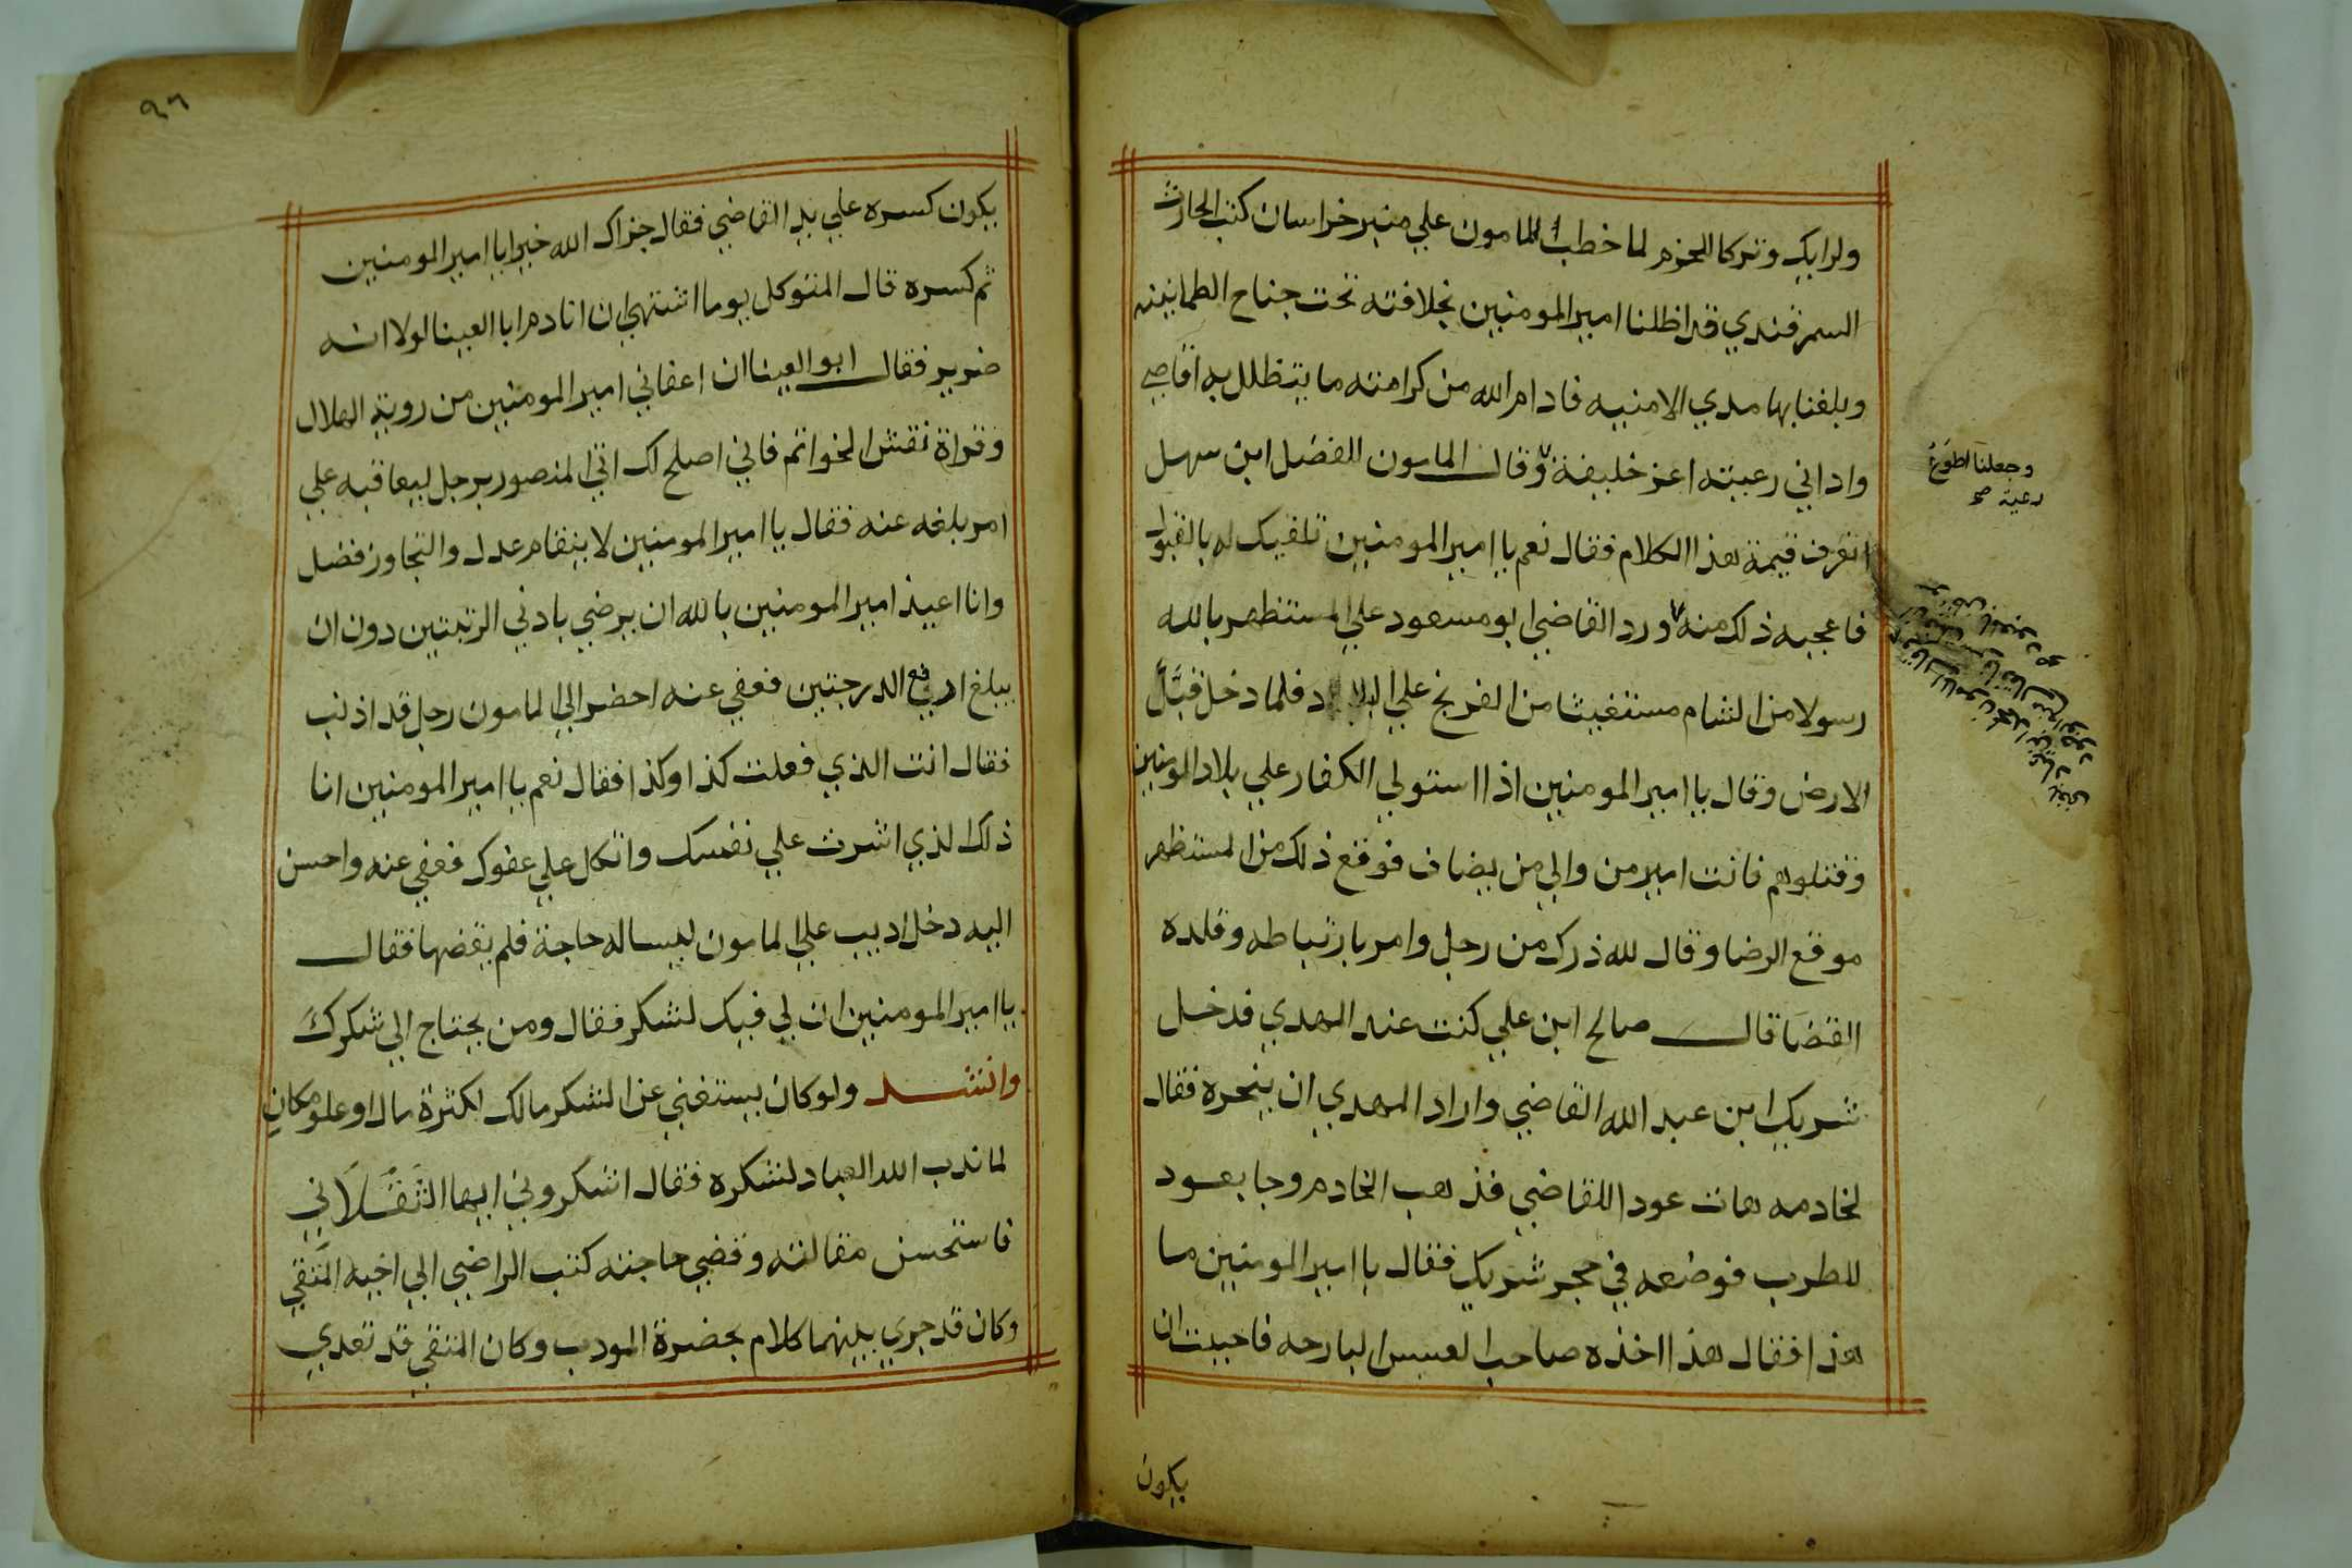 ولرايك وتركا الحزم لما خطب المامون علي منبر خراسان كتب الحارث
السمرقندي قد اظلنا امير المومنين بخلافته تحت جناح الطمانينه
وبلغنا بها مدي الامنيه فادام الله من كرامته ما يتظلل به اقاصي
واداني رعيته اعز خليفة وقال المامون للفضل ابن سهل
اتعرف قيمة هذا الكلام فقال نعم يا امير المومنين تلقيك له بالقبول
فاعجبه ذلك منه ورد القاضي ابو مسعود علي المستظهر بالله
رسولا من الشام مستغيثا من الفرنج علي البلاد فلما دخل قبّل
الارض وقال يا امير المومنين اذا استولي الكفار علي بلاد المومنين
وقتلوهم فانت امير من والي من يضاف فوقع ذلك من المستظهر
موقع الرضا وقال لله ذرك من رجل وامر بارتباطه وقلده
القضا قال صالح ابن علي كنت عند المهدي فدخل
شريك ابن عبد الله القاضي واراد المهدي ان ينحره فقال
لخادمه هات عودا للقاضي فذهب الخادم وجا بعود
للطرب فوضعه في حجر شريك فقال يا امير المومنين ما
هذا فقال هذا اخذه صاحب العسس البارحه فاحببت ان
يكون
وجعلنا اطوع
رعية صح
٩٦
يكون كسره علي يد القاضي فقال جزاك الله خيرا يا امير المومنين
ثم كسره قال المتوكل يوما اشتهي ان انادم ابا العينا لولا انه
ضرير فقال ابو العينا ان اعفاني امير المومنين من روية الهلال
وقراة نقش الخواتم فاني اصلح لك اتي المنصور برجل ليعاقبه علي
امر بلغه عنه فقال يا امير المومنين لا ينقام عدل والتجاوز فضل
وانا اعيذ امير المومنين بالله ان يرضي بادني الرتبتين دون ان
يبلغ ارفع الدرجتين فعفي عنه احضر الي المامون رجل قد اذنب
فقال انت الذي فعلت كذا وكذا فقال نعم يا امير المومنين انا
ذلك الذي اشرت علي نفسك واتكل علي عفوك فعفي عنه واحسن
اليه دخل اديب علي المامون ليساله حاجة فلم يقضها فقال
يا امير المومنين ان لي فيك لشكر فقال ومن يحتاج الي شكرك
وانشد ولو كان يستغني عن الشكر مالك لكثرة مال او علو مكان
لما ندب الله العباد لشكره فقال اشكروني ايها الثقلان
فاستحسن مقالته وقضي حاجته كتب الراضي الي اخيه المتقي
وكان قد جري بينهما كلام بحضرة المودب وكان المتقي قد تعدي